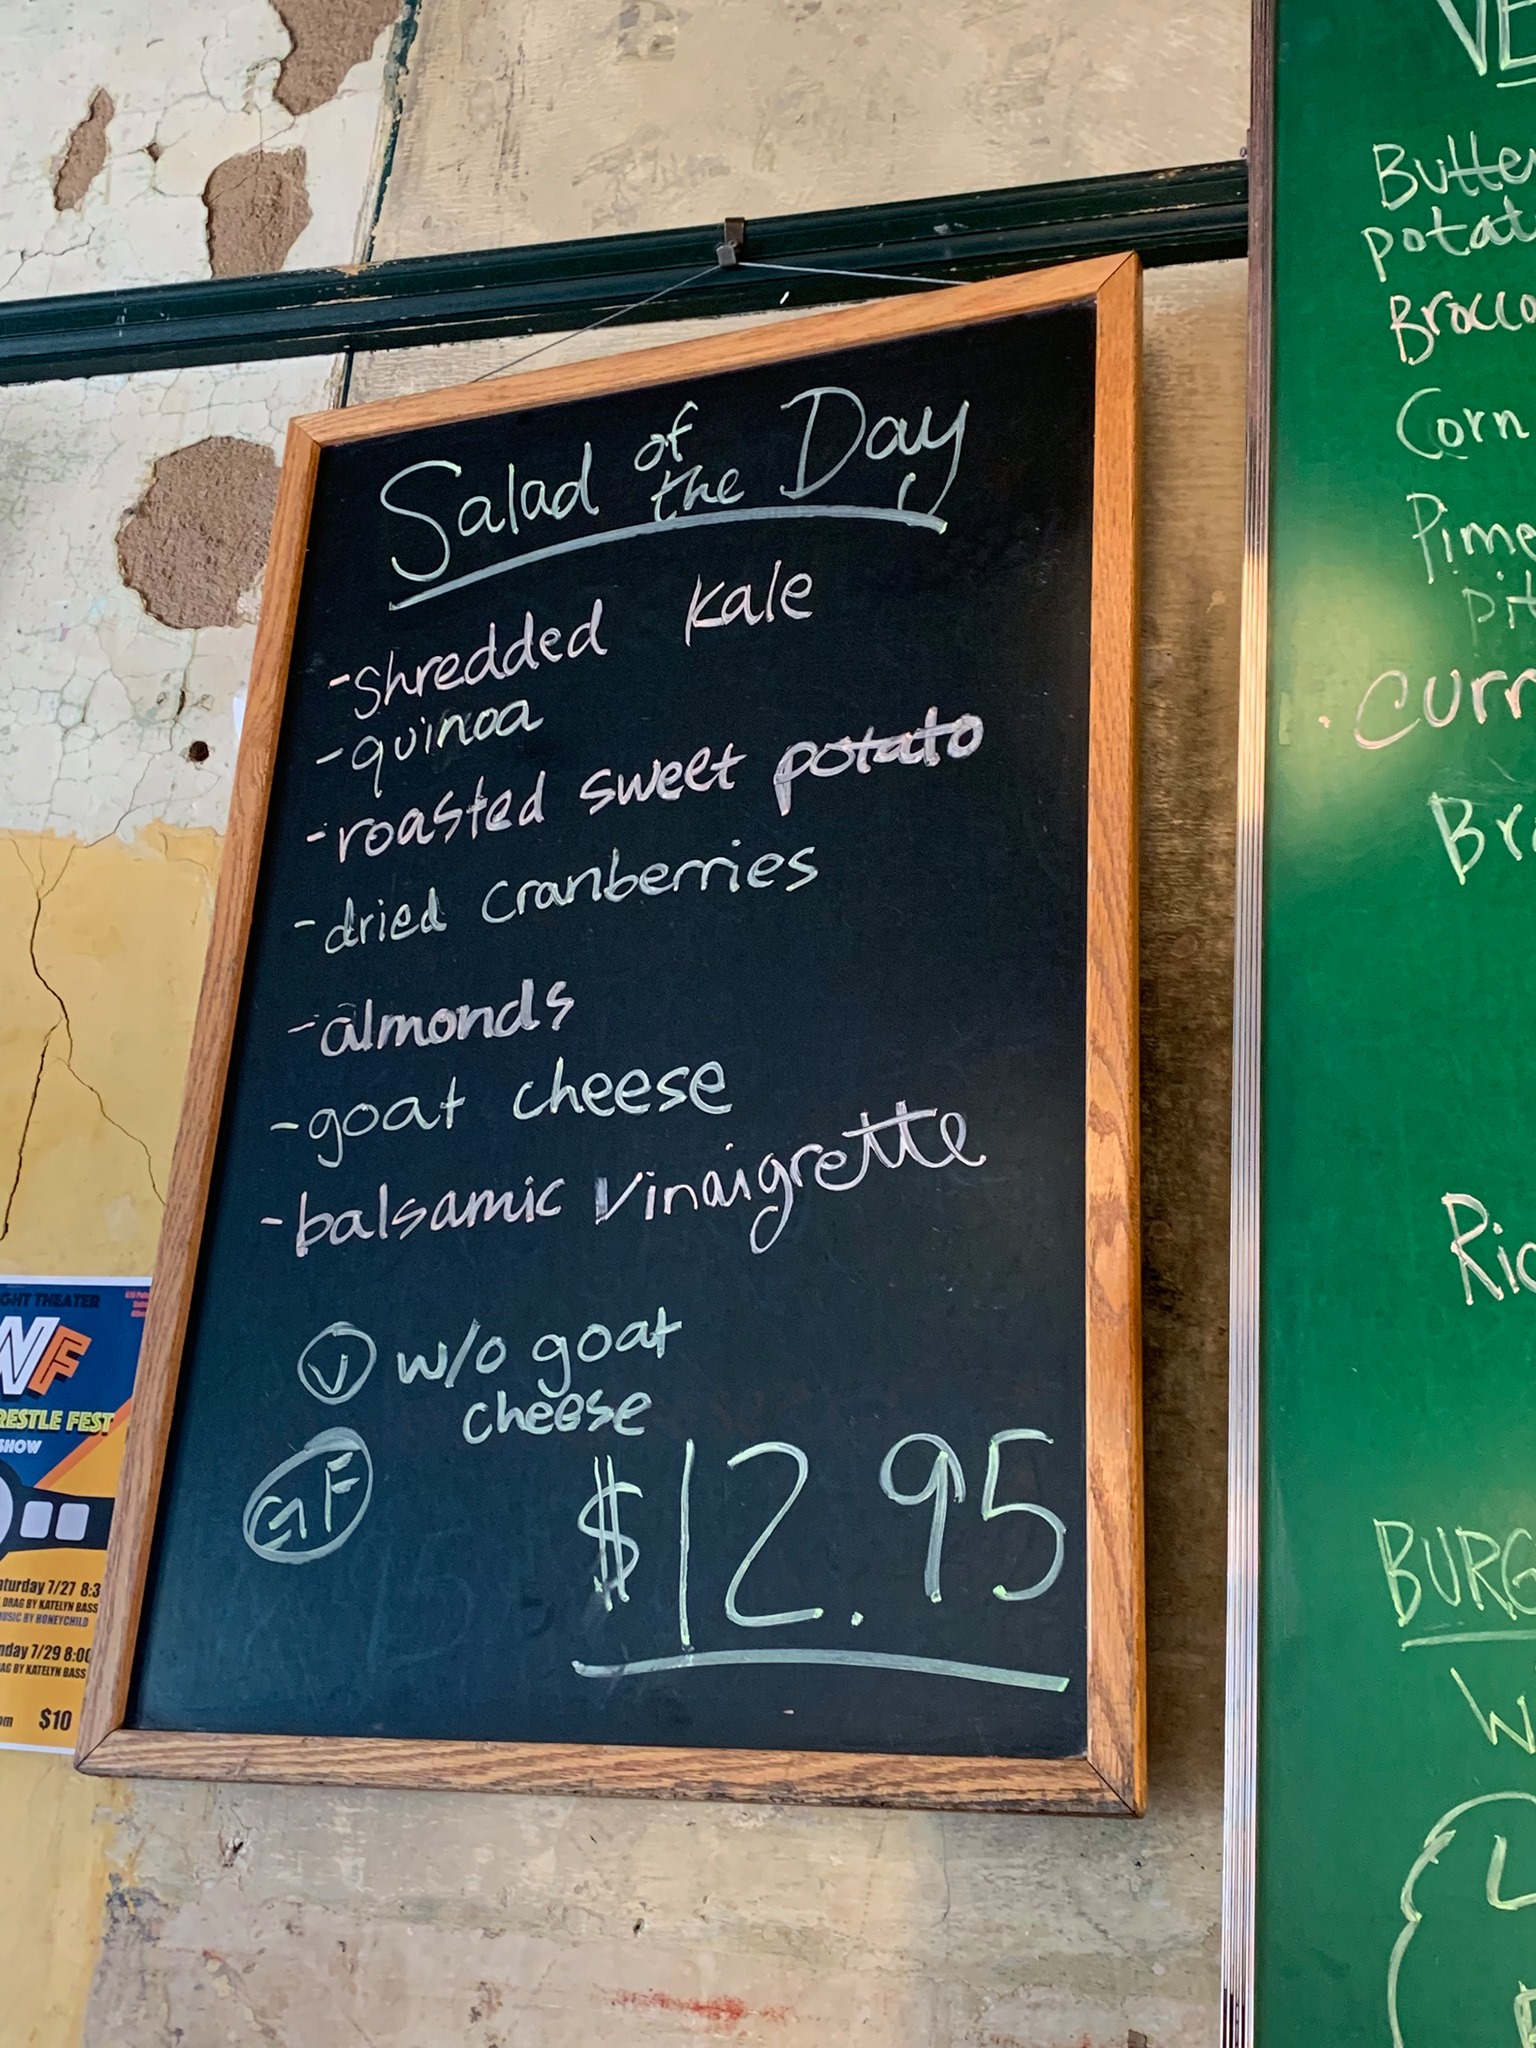 Salad of the Day
-shredded kale
-quinoa
-roasted sweet potato
-dried cranberries
-almonds
-goat cheese
-balsamic vinaigrette
V w/o goat
cheese
GF
$12.95
GHT THEATER
WF
RESTLE FEST
SHOW
aturday 7/27 8:3
DRAG BY KATELYN BASS
USIC BY HONEYCHILD
nday 7/29 8:00
AG BY KATELYN BASS
pm $10
VE
Butter
potat
Brocco
Corn
Pime
pit
Curr
Br
Ric
BURG
W
L